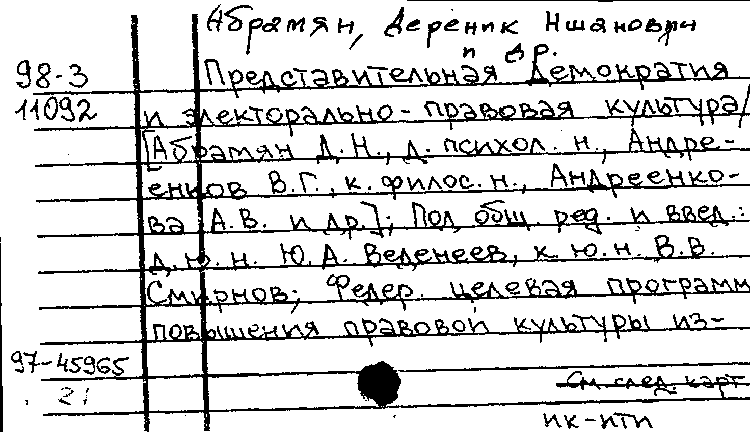 Абрамян, Дереник Ншанович
и др.
98-3 Представительная демократия
11092 и электорально-правовая культура/
[Абрамян Д.Н., д. психол. н., Андре-
енков В.Г., к. филос. н., Андреенко-
ва А.В. и др.]; Под общ. ред. и введ.:
д.ю.н. Ю.А. Веденеев, к.ю.н. В.В.
Смирнов; Федер. целевая программ
повышения правовой культуры из-
97-45965
21
См. след. карт
ИК-ИТИ